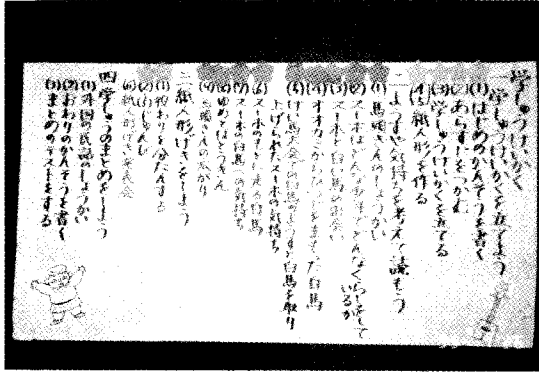 学しゅうけいかく
一 学しゅうけいかくを立てよう
(1) はじめのかんそうを書く
(2) あらすじをつかむ
(3) 学しゅうけいかくを立てる
(4) 紙人形を作る
二 ようすや気持ちを考えて読もう
(1) 馬頭きんのしょうかい
(2) スーホはどんな
(3) スーホと白い馬の出会い
(4) オオカミからひつじをまもった白馬
(5) けい馬大会の白馬のようすと白馬を取り
上げられたスーホの気持ち
(6) スーホのもとへ
(7) スーホの白馬への気持ち
(8) ゆめとばとうきん
(9) 馬頭きんの広がり
三 紙人形げきをしよう
(1) 役わりを分たんする
(2) れんしゅう
(3) 紙人形げき発表会
四 学しゅうのまとめをしよう
(1) 外国の民話のしょうかい
(2) おわりのかんそうを書く
(3) まとめのテストをする